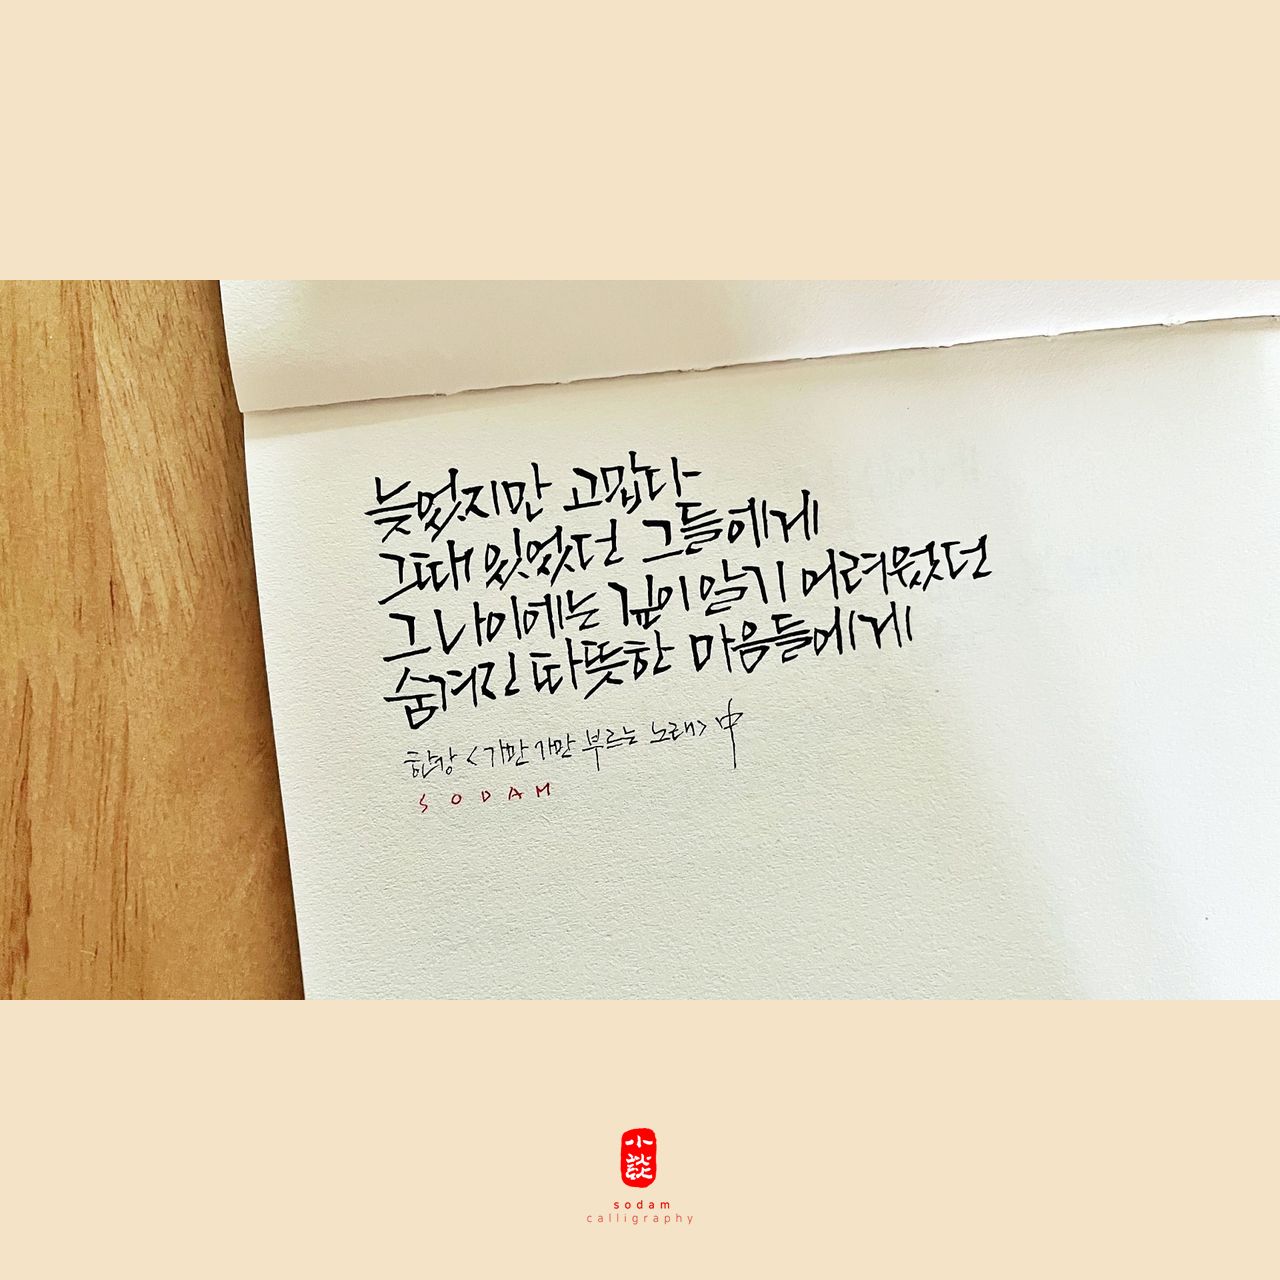 늦었지만 고맙다
그때 있었던 그들에게
그 나이에는 깊이 알기 어려웠던
숨겨진 따뜻한 마음들에게
한강 <가만가만 부르는 노래> 中
SODAM
小
談
sodam
calligraphy